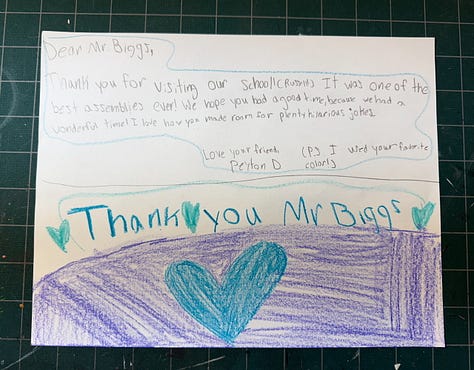 Dear Mr. Biggs,
Thank you for visiting our school! It was one of the
best assemblies ever! We hope you had a good time, because we had a
wonderful time! I love how you made room for plenty hilarious jokes.
Love your friend, (P.S. I used your favorite
Peyton D colors!)
Thank you Mr Biggs